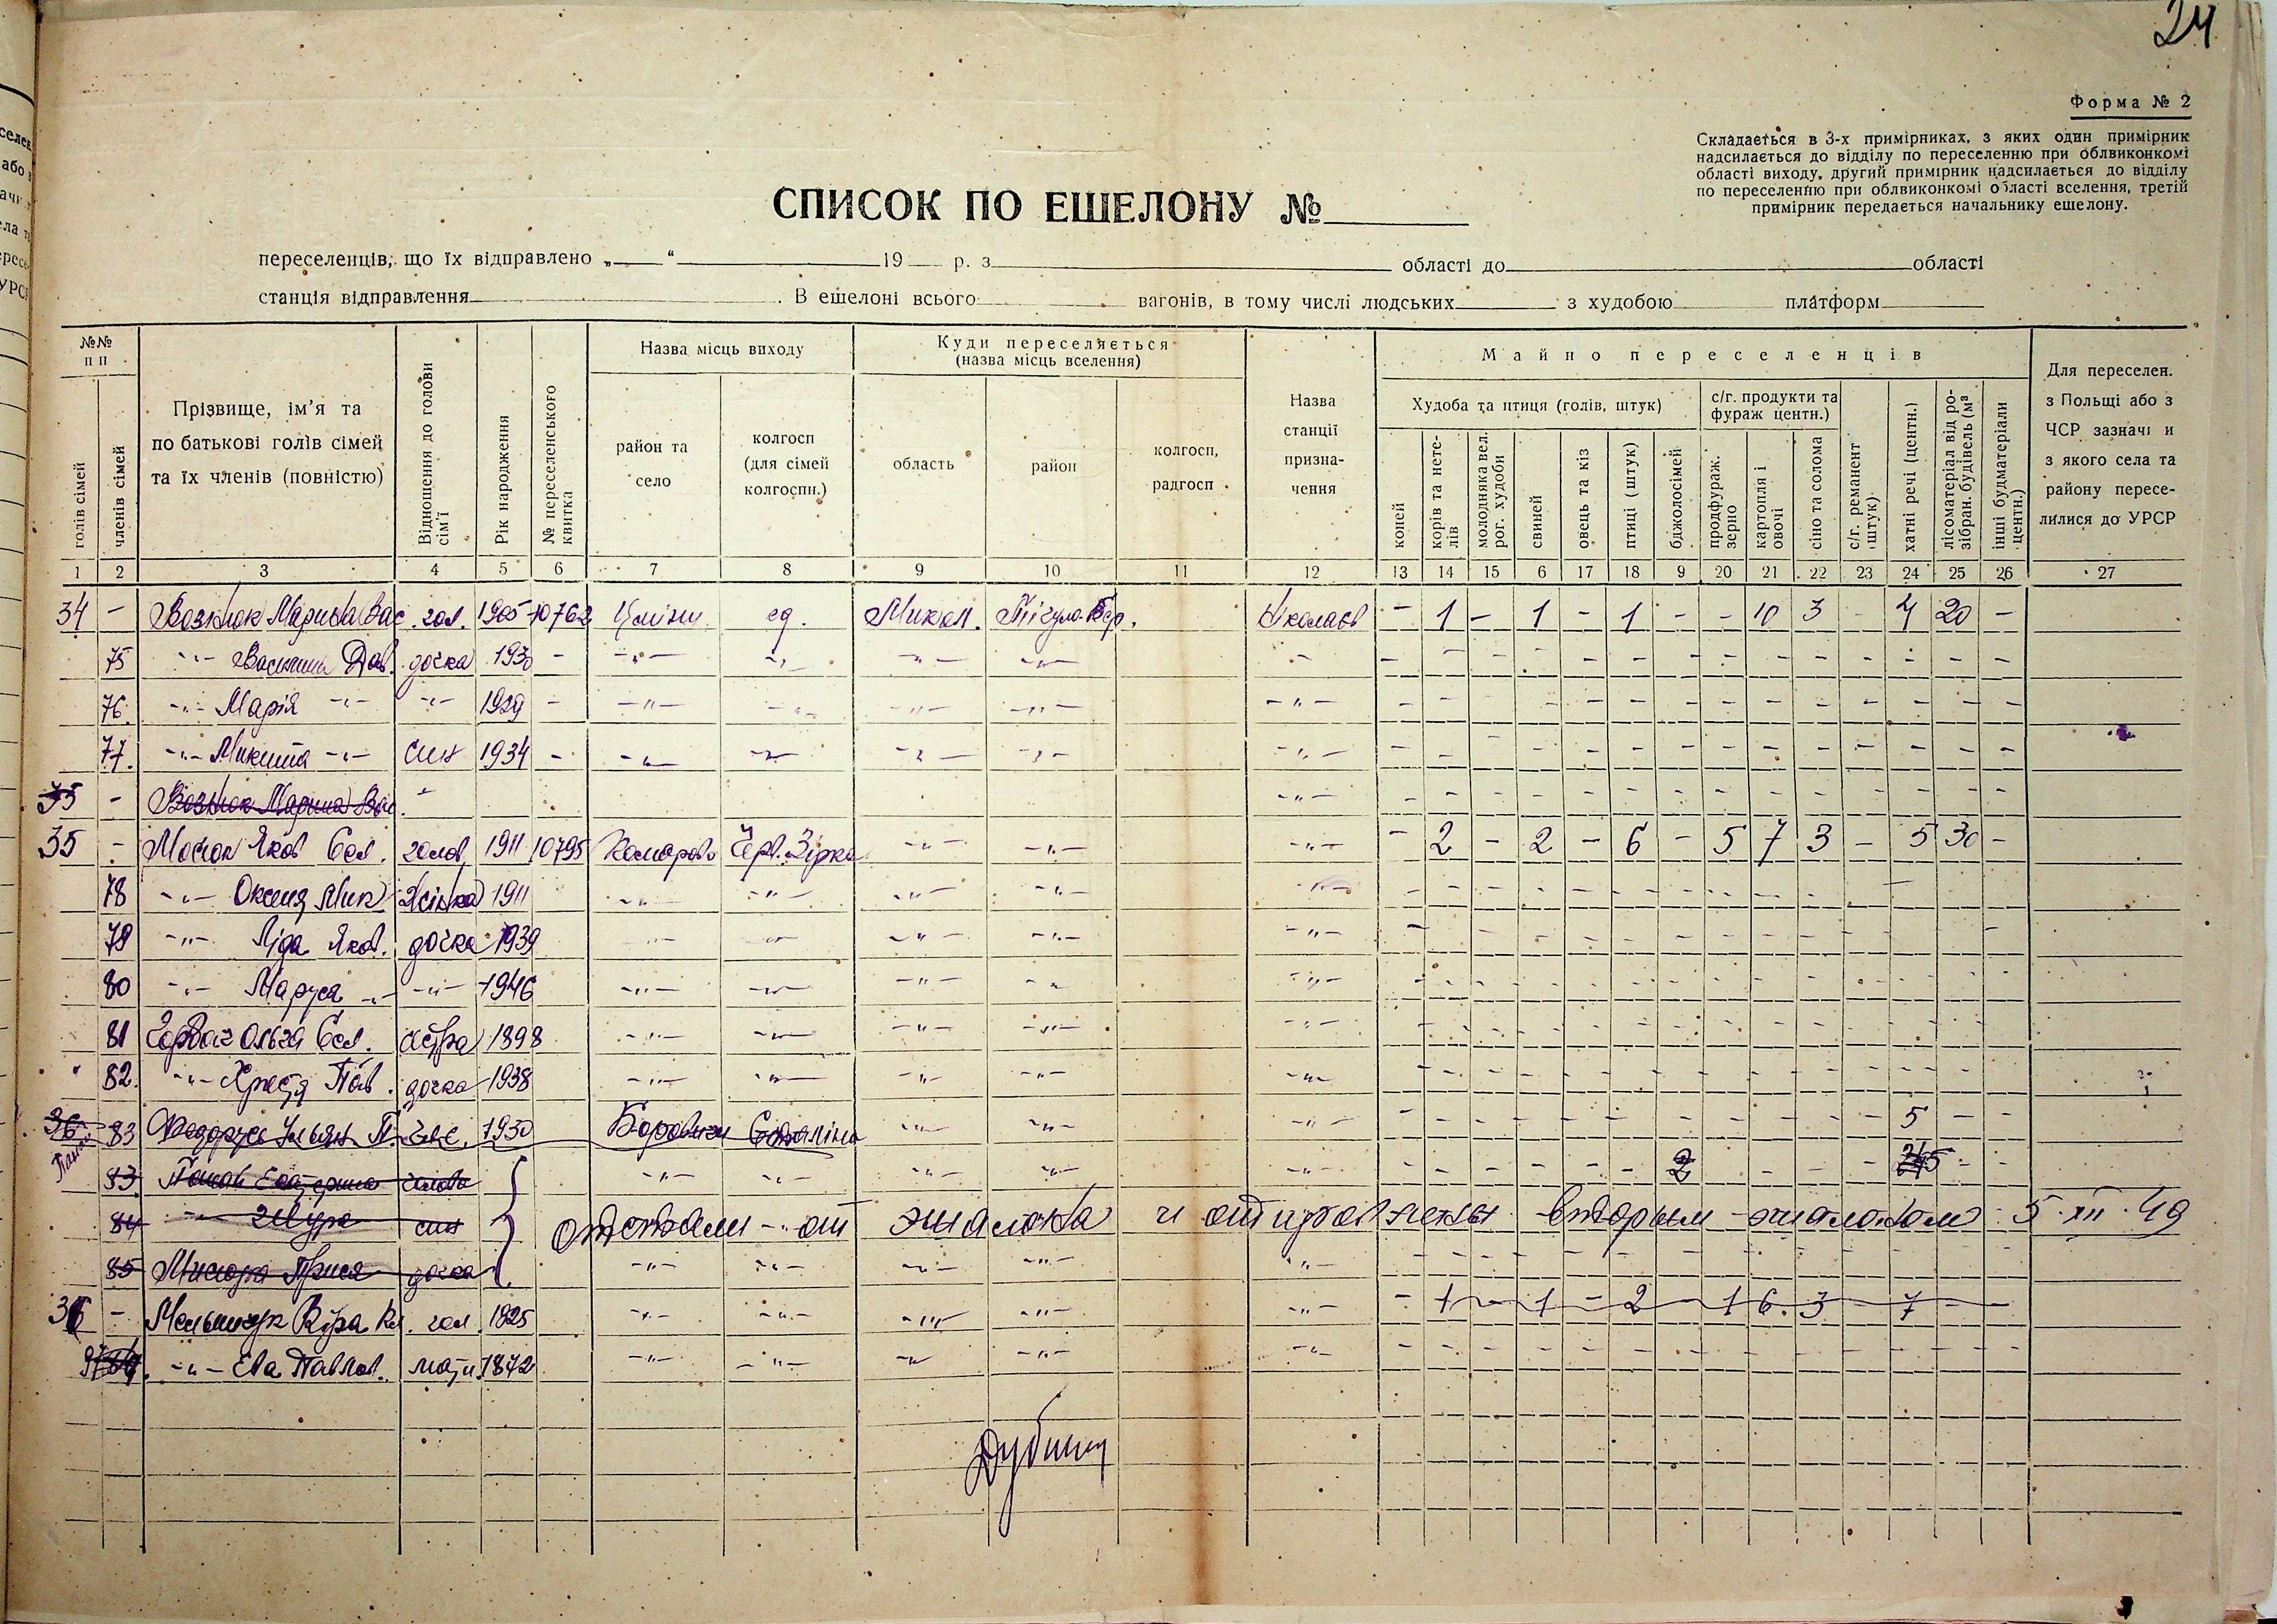 24
Форма № 2
Складається в 3-х примірниках, з яких один примірник
надсилається до відділу по переселенню при облвиконкомі
області виходу, другий примірник надсилається до відділу
по переселенню при облвиконкомі області вселення, третій
примірник передається начальнику ешелону.
СПИСОК ПО ЕШЕЛОНУ №
переселенців, що їх відправлено „ “ 19 р. з області до області
станція відправлення . В ешелоні всього вагонів, в тому числі людських з худобою платформ
№№ п п
голів сімей
членів сімей
Прізвище, ім’я та
по батькові голів сімей
та їх членів (повністю)
Відношення до голови сім’ї
Рік народження
№ переселенського квитка
Назва місць виходу
район та
село
колгосп
(для сімей
колгоспн.)
Куди переселяється
(назва місць вселення)
область
район
колгосп,
радгосп
Назва
станції
призна-
чення
Майно переселенців
Худоба та птиця (голів, штук)
коней
корів та нете-
лів
молодняка вел.
рог. худоби
свиней
овець та кіз
птиці (штук)
бджолосімей
с/г. продукти та
фураж центн.)
продфураж.
зерно
картопля і
овочі
сіно та солома
с/г. реманент
штук)
хатні речі (центн.)
лісоматеріал від ро-
зібран. будівель (м³
інші будматеріали
центн.)
Для переселен.
з Польщі або з
ЧСР зазначи и
з якого села та
району пересе-
лилися до УРСР
1 2 3 4 5 6 7 8 9 10 11 12 13 14 15 6 17 18 9 20 21 22 23 24 25 26 27
34 - Вознюк Марина Вас. гол. 1905 10762 єд. Микол. - 1 - 1 - 1 - - 10 3 - 4 20 -
75 -"- Дав. дочка 1930 -
76. -"- Марія -"- -"- 1929 -
77. -"- Микита -"- син 1934 -
35 - Вознюк Марина Вас.
35 - Яков гол. 1911 10795 Комарово Черв. Зірка -"- -"- -"- - 2 - 2 - 6 - 5 7 3 - 5 30 -
78 -"- Оксеня Мик. жінка 1911
79 -"- Ліда Яков. дочка 1939
80 -"- Маруся -"- -"- 1946
81 Горбач Ольга сестра 1898
82. -"- Христя Пав. дочка 1938
36 83 Федорусь Ульян П. 1930 Боровичи 5 - -
83 Панай Екатерина голова 2
84 -"- син отстали от эшалона и отправлены вторым эшалоном 5.XII.49
85 дочка
36 - Мельничук Віра гол. 1925 - 1 - 1 - 2 - 1 6. 3 - 7 - -
-"- Ева Павлов. мати 1872